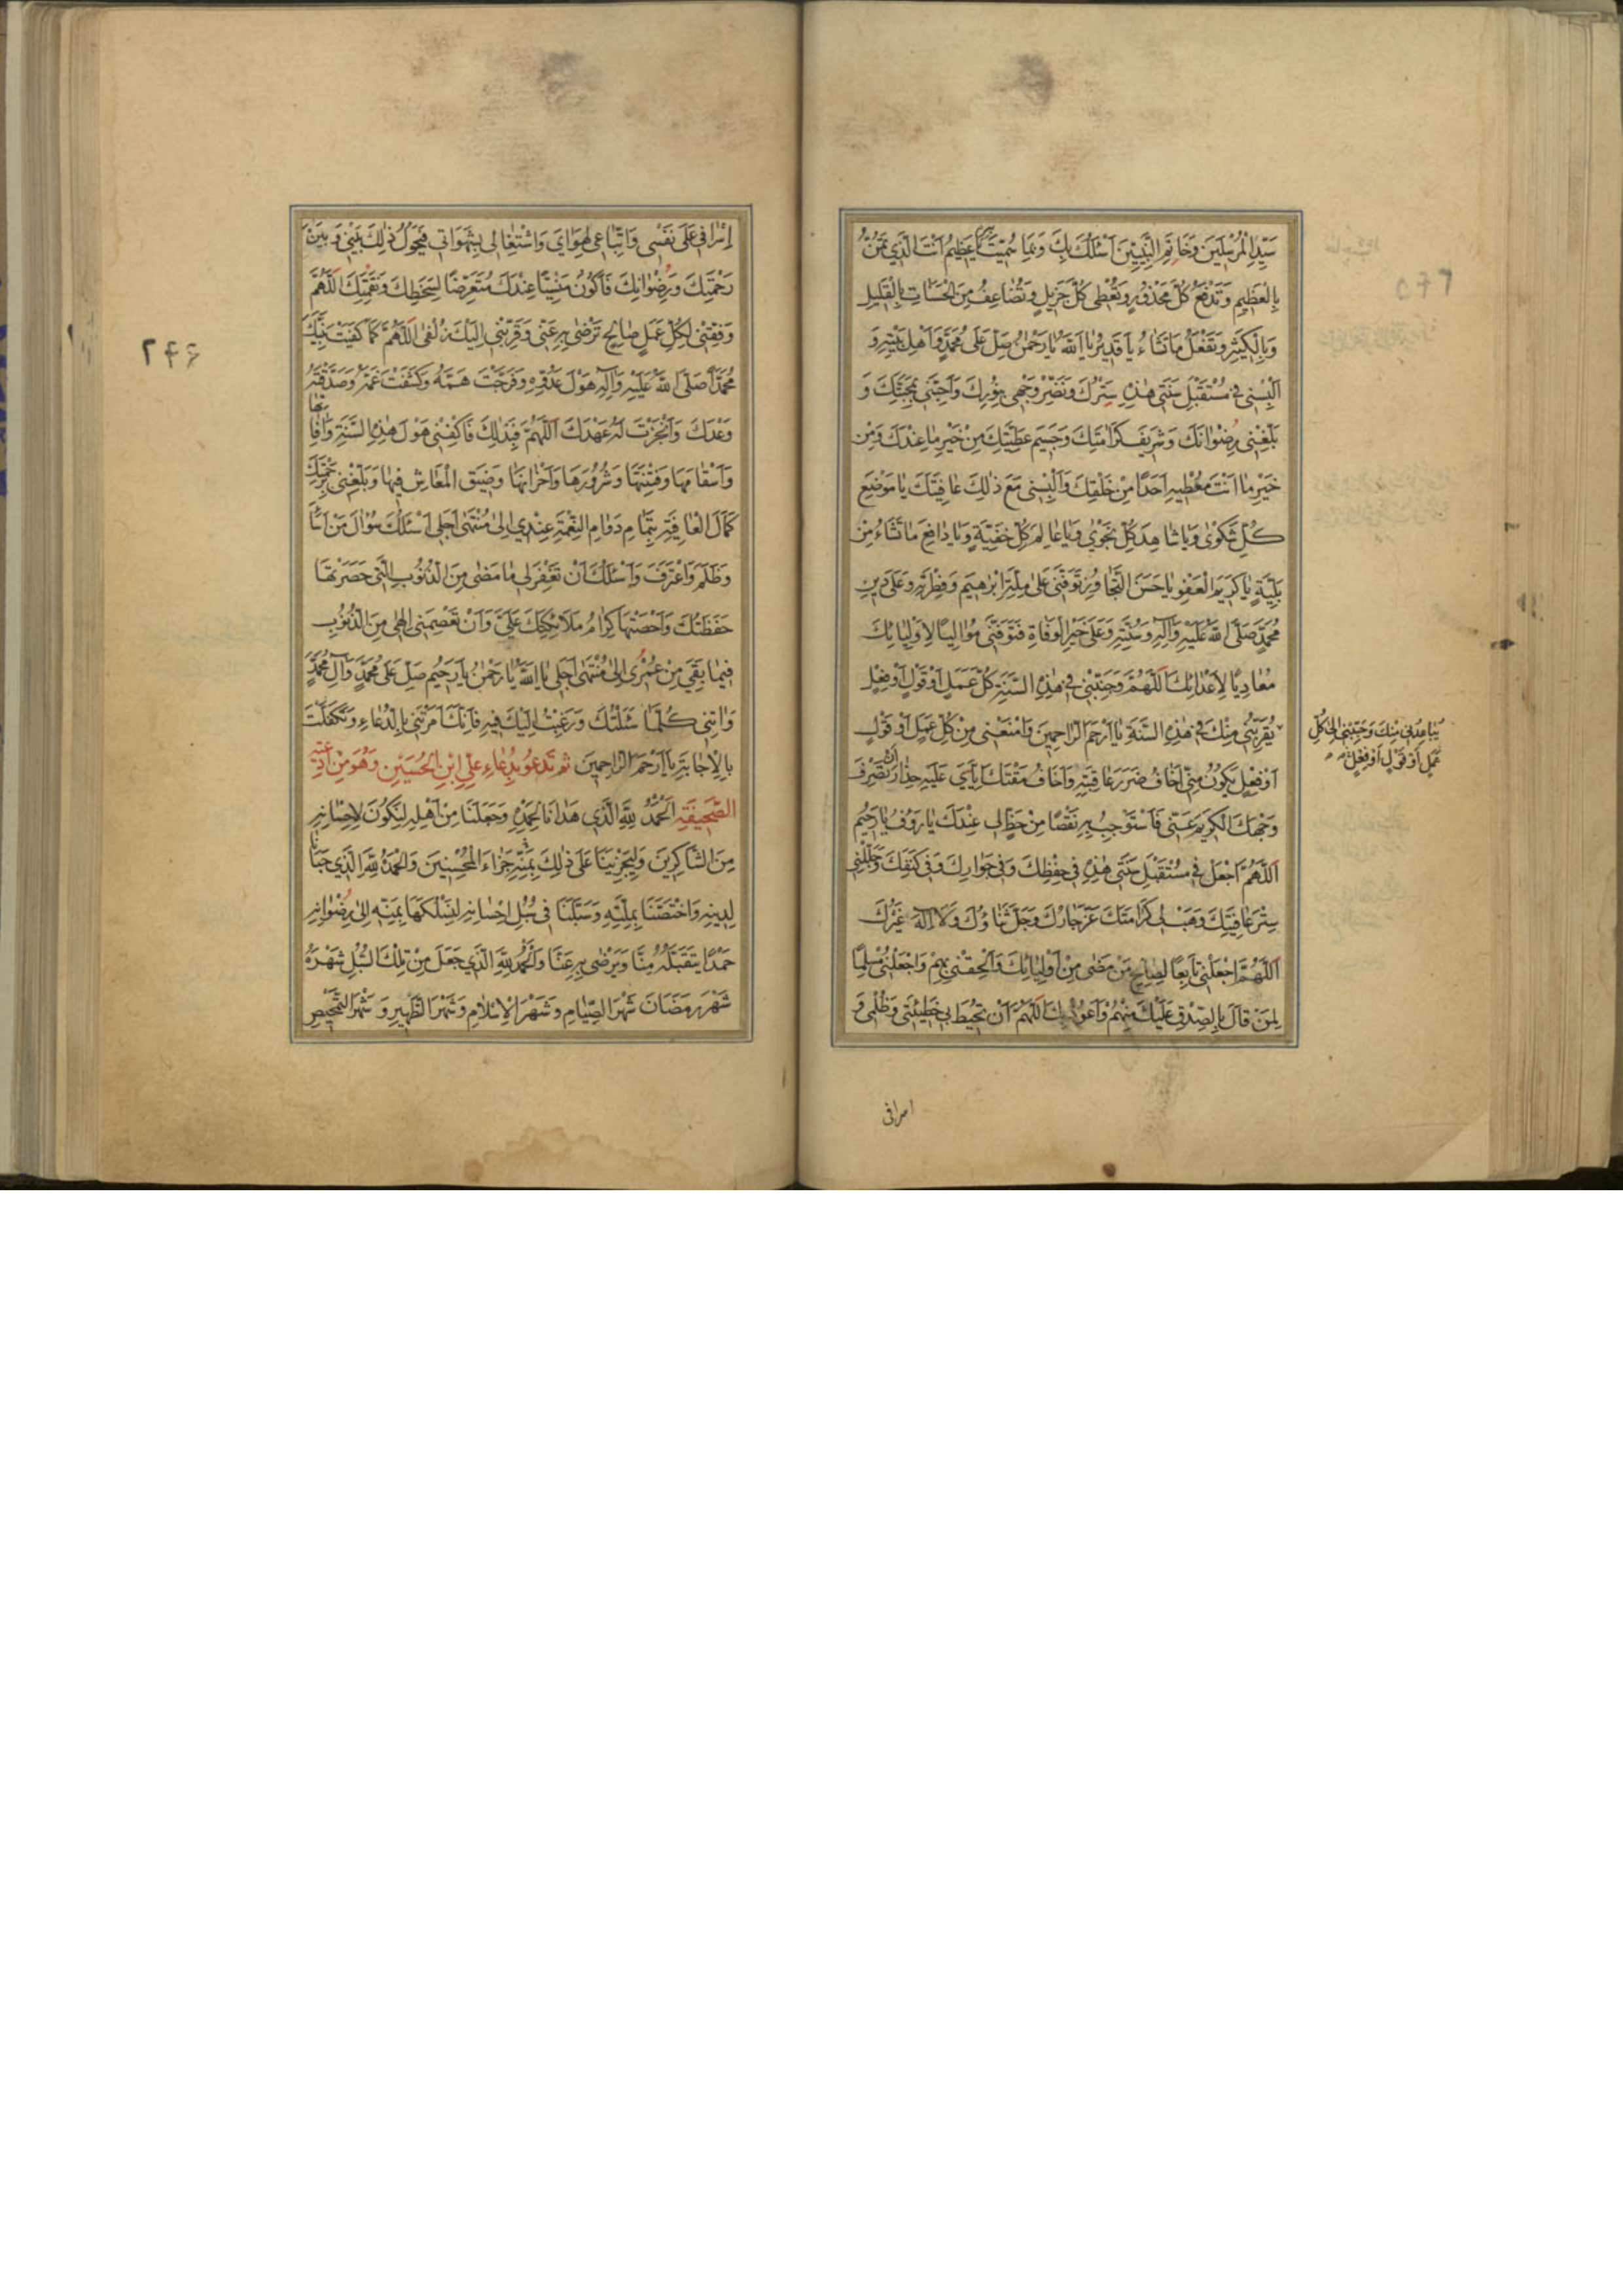 سَيِّدِ الْمُرْسَلِينَ وَخَاتَمِ النَّبِيِّينَ اَسْئَلُكَ بِكَ وَبِمَا سَمَّيْتَ يَا عَظِيمُ اَنْتَ الَّذِي تَمُنُّ
بِالْعَظِيمِ وَتَدْفَعُ كُلَّ مَحْذُورٍ وَتُعْطِي كُلَّ جَزِيلٍ وَتُضَاعِفُ مِنَ الْحَسَنَاتِ بِالْقَلِيلِ
وَبِالْكَثِيرِ وَتَفْعَلُ مَا تَشَاءُ يَا قَدِيرُ يَا اَللَّهُ يَا رَحْمٰنُ صَلِّ عَلَى مُحَمَّدٍ وَاَهْلِ بَيْتِهِ وَ
اَلْبِسْنِي فِي مُسْتَقْبَلِ سَنَتِي هٰذِهِ سِتْرَكَ وَنَضِّرْ وَجْهِي بِنُورِكَ وَاَحِبَّنِي بِمَحَبَّتِكَ وَ
بَلِّغْنِي رِضْوَانَكَ وَشَرِيفَ كَرَامَتِكَ وَجَسِيمَ عَطِيَّتِكَ مِنْ خَيْرِ مَا عِنْدَكَ وَمِنْ
خَيْرِ مَا اَنْتَ مُعْطِيهِ اَحَدًا مِنْ خَلْقِكَ وَاَلْبِسْنِي مَعَ ذٰلِكَ عَافِيَتَكَ يَا مَوْضِعَ
كُلِّ شَكْوٰى وَيَا شَاهِدَ كُلِّ نَجْوٰي وَيَا عَالِمَ كُلِّ خَفِيَّةٍ وَيَا دَافِعَ مَا تَشَاءُ مِنْ
بَلِيَّةٍ يَا كَرِيمَ الْعَفْوِ يَا حَسَنَ التَّجَاوُزِ تَوَفَّنِي عَلَى مِلَّةِ اِبْرٰهِيمَ وَفِطْرَتِهِ وَعَلَى دِينِ
مُحَمَّدٍ صَلَّى اللَّهُ عَلَيْهِ وَآلِهِ وَسُنَّتِهِ وَعَلَى خَيْرِ الْوَفَاةِ فَتَوَفَّنِي مُوَالِيًا لِاَوْلِيَائِكَ
مُعَادِيًا لِاَعْدَائِكَ اَللَّهُمَّ وَجَنِّبْنِي فِي هٰذِهِ السَّنَةِ كُلَّ عَمَلٍ اَوْ قَوْلٍ اَوْ فِعْلٍ
يُبَاعِدُنِي مِنْكَ وَجَنِّبْنِي اِلٰى كُلِّ
عَمَلٍ اَوْ قَوْلٍ اَوْ فِعْلٍ
يُقَرِّبُنِي مِنْكَ فِي هٰذِهِ السَّنَةِ يَا اَرْحَمَ الرَّاحِمِينَ وَامْنَعْنِي مِنْ كُلِّ عَمَلٍ اَوْ قَوْلٍ
اَوْ فِعْلٍ يَكُونُ مِنِّي اَخَافُ ضَرَرَ عَاقِبَتِهِ وَاَخَافُ مَقْتَكَ اِيَّايَ عَلَيْهِ حِذَارَ اَنْ تَصْرِفَ
وَجْهَكَ الْكَرِيمَ عَنِّي فَاَسْتَوْجِبَ بِهِ نَقْصًا مِنْ حَظٍّ لِي عِنْدَكَ يَا رَؤُفُ يَا رَحِيمُ
اَللّٰهُمَّ اجْعَلْنِي فِي مُسْتَقْبَلِ سَنَتِي هٰذِهِ فِي حِفْظِكَ وَفِي جِوَارِكَ وَفِي كَنَفِكَ وَجَلِّلْنِي
سِتْرَ عَافِيَتِكَ وَهَبْ لِي كَرَامَتَكَ عَزَّ جَارُكَ وَجَلَّ ثَنَاؤُكَ وَلَا اِلٰهَ غَيْرُكَ
اَللّٰهُمَّ اجْعَلْنِي تَابِعًا لِصَالِحِ مَنْ مَضٰى مِنْ اَوْلِيَائِكَ وَاَلْحِقْنِي بِهِمْ وَاجْعَلْنِي مُسْلِمًا
لِمَنْ قَالَ بِالصِّدْقِ عَلَيْكَ مِنْهُمْ وَاَعُوذُ بِكَ اللّٰهُمَّ اَنْ تُحِيطَ بِي خَطِيئَتِي وَظُلْمِي وَ
اسرافی
اِسْرَافِي عَلَى نَفْسِي وَاتِّبَاعِي لِهَوَايَ وَاشْتِغَالِي بِشَهَوَاتِي فَيَحُولُ ذٰلِكَ بَيْنِي وَبَيْنَ
رَحْمَتِكَ وَرِضْوَانِكَ فَاَكُونَ مَنْسِيًّا عِنْدَكَ مُتَعَرِّضًا لِسَخَطِكَ وَنِقْمَتِكَ اَللّٰهُمَّ
وَفِّقْنِي لِكُلِّ عَمَلٍ صَالِحٍ تَرْضٰى بِهِ عَنِّي وَقَرِّبْنِي اِلَيْكَ زُلْفٰى اَللّٰهُمَّ كَمَا كَفَيْتَ نَبِيَّكَ
۲۴۶
مُحَمَّدًا صَلَّى اللَّهُ عَلَيْهِ وَآلِهِ هَوْلَ عَدُوِّهِ وَفَرَّجْتَ هَمَّهُ وَكَشَفْتَ غَمَّهُ وَصَدَقْتَهُ
وَعْدَكَ وَاَنْجَزْتَ لَهُ عَهْدَكَ اَللّٰهُمَّ فَبِذٰلِكَ فَاكْفِنِي هَوْلَ هٰذِهِ السَّنَةِ وَآفَاتِهَا
وَاَسْقَامَهَا وَفِتْنَتَهَا وَشُرُورَهَا وَاَحْزَانَهَا وَضِيقَ الْمَعَاشِ فِيهَا وَبَلِّغْنِي بِرَحْمَتِكَ
كَمَالَ الْعَافِيَةِ بِتَمَامِ دَوَامِ النِّعْمَةِ عِنْدِي اِلٰى مُنْتَهٰى اَجَلِي اَسْئَلُكَ سُؤَالَ مَنْ اَسَاءَ
وَظَلَمَ وَاعْتَرَفَ وَاَسْئَلُكَ اَنْ تَغْفِرَ لِي مَا مَضٰى مِنَ الذُّنُوبِ الَّتِي حَصَرَتْهَا
حَفَظَتُكَ وَاَحْصَتْهَا كِرَامُ مَلَائِكَتِكَ عَلَيَّ وَاَنْ تَعْصِمَنِي اِلٰهِي مِنَ الذُّنُوبِ
فِيمَا بَقِيَ مِنْ عُمْرِي اِلٰى مُنْتَهٰى اَجَلِي يَا اَللَّهُ يَا رَحْمٰنُ يَا رَحِيمُ صَلِّ عَلَى مُحَمَّدٍ وَآلِ مُحَمَّدٍ
وَاٰتِنِي كُلَّمَا سَئَلْتُكَ وَرَغِبْتُ اِلَيْكَ فِيهِ فَاِنَّكَ اَمَرْتَنِي بِالدُّعَاءِ وَتَكَفَّلْتَ
بِالْاِجَابَةِ يَا اَرْحَمَ الرَّاحِمِينَ ثم تَدْعُو بِدُعَاءِ عَلِيِّ ابْنِ الْحُسَيْنِ وَهُوَ مِنْ اَدْعِيَةِ
الصَّحِيفَةِ اَلْحَمْدُ لِلّٰهِ الَّذِي هَدَانَا لِحَمْدِهِ وَجَعَلَنَا مِنْ اَهْلِهِ لِنَكُونَ لِاِحْسَانِهِ
مِنَ الشَّاكِرِينَ وَلِيَجْزِيَنَا عَلَى ذٰلِكَ بِمَنِّهِ جَزَاءَ الْمُحْسِنِينَ وَالْحَمْدُ لِلّٰهِ الَّذِي حَبَانَا
لِدِينِهِ وَاخْتَصَّنَا بِمِلَّتِهِ وَسَبَّلَنَا فِي سُبُلِ اِحْسَانِهِ لِنَسْلُكَهَا بِمَنِّهِ اِلٰى رِضْوَانِهِ
حَمْدًا يَتَقَبَّلُهُ مِنَّا وَيَرْضٰى بِهِ عَنَّا وَالْحَمْدُ لِلّٰهِ الَّذِي جَعَلَ مِنْ تِلْكَ السُّبُلِ شَهْرَهُ
شَهْرَ رَمَضَانَ شَهْرَ الصِّيَامِ وَشَهْرَ الْاِسْلَامِ وَشَهْرَ الطَّهُورِ وَشَهْرَ التَّمْحِيصِ